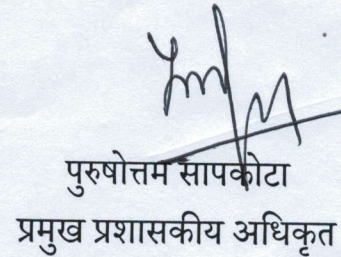 पुरुषोत्तम सापकोटा
प्रमुख प्रशासकीय अधिकृत